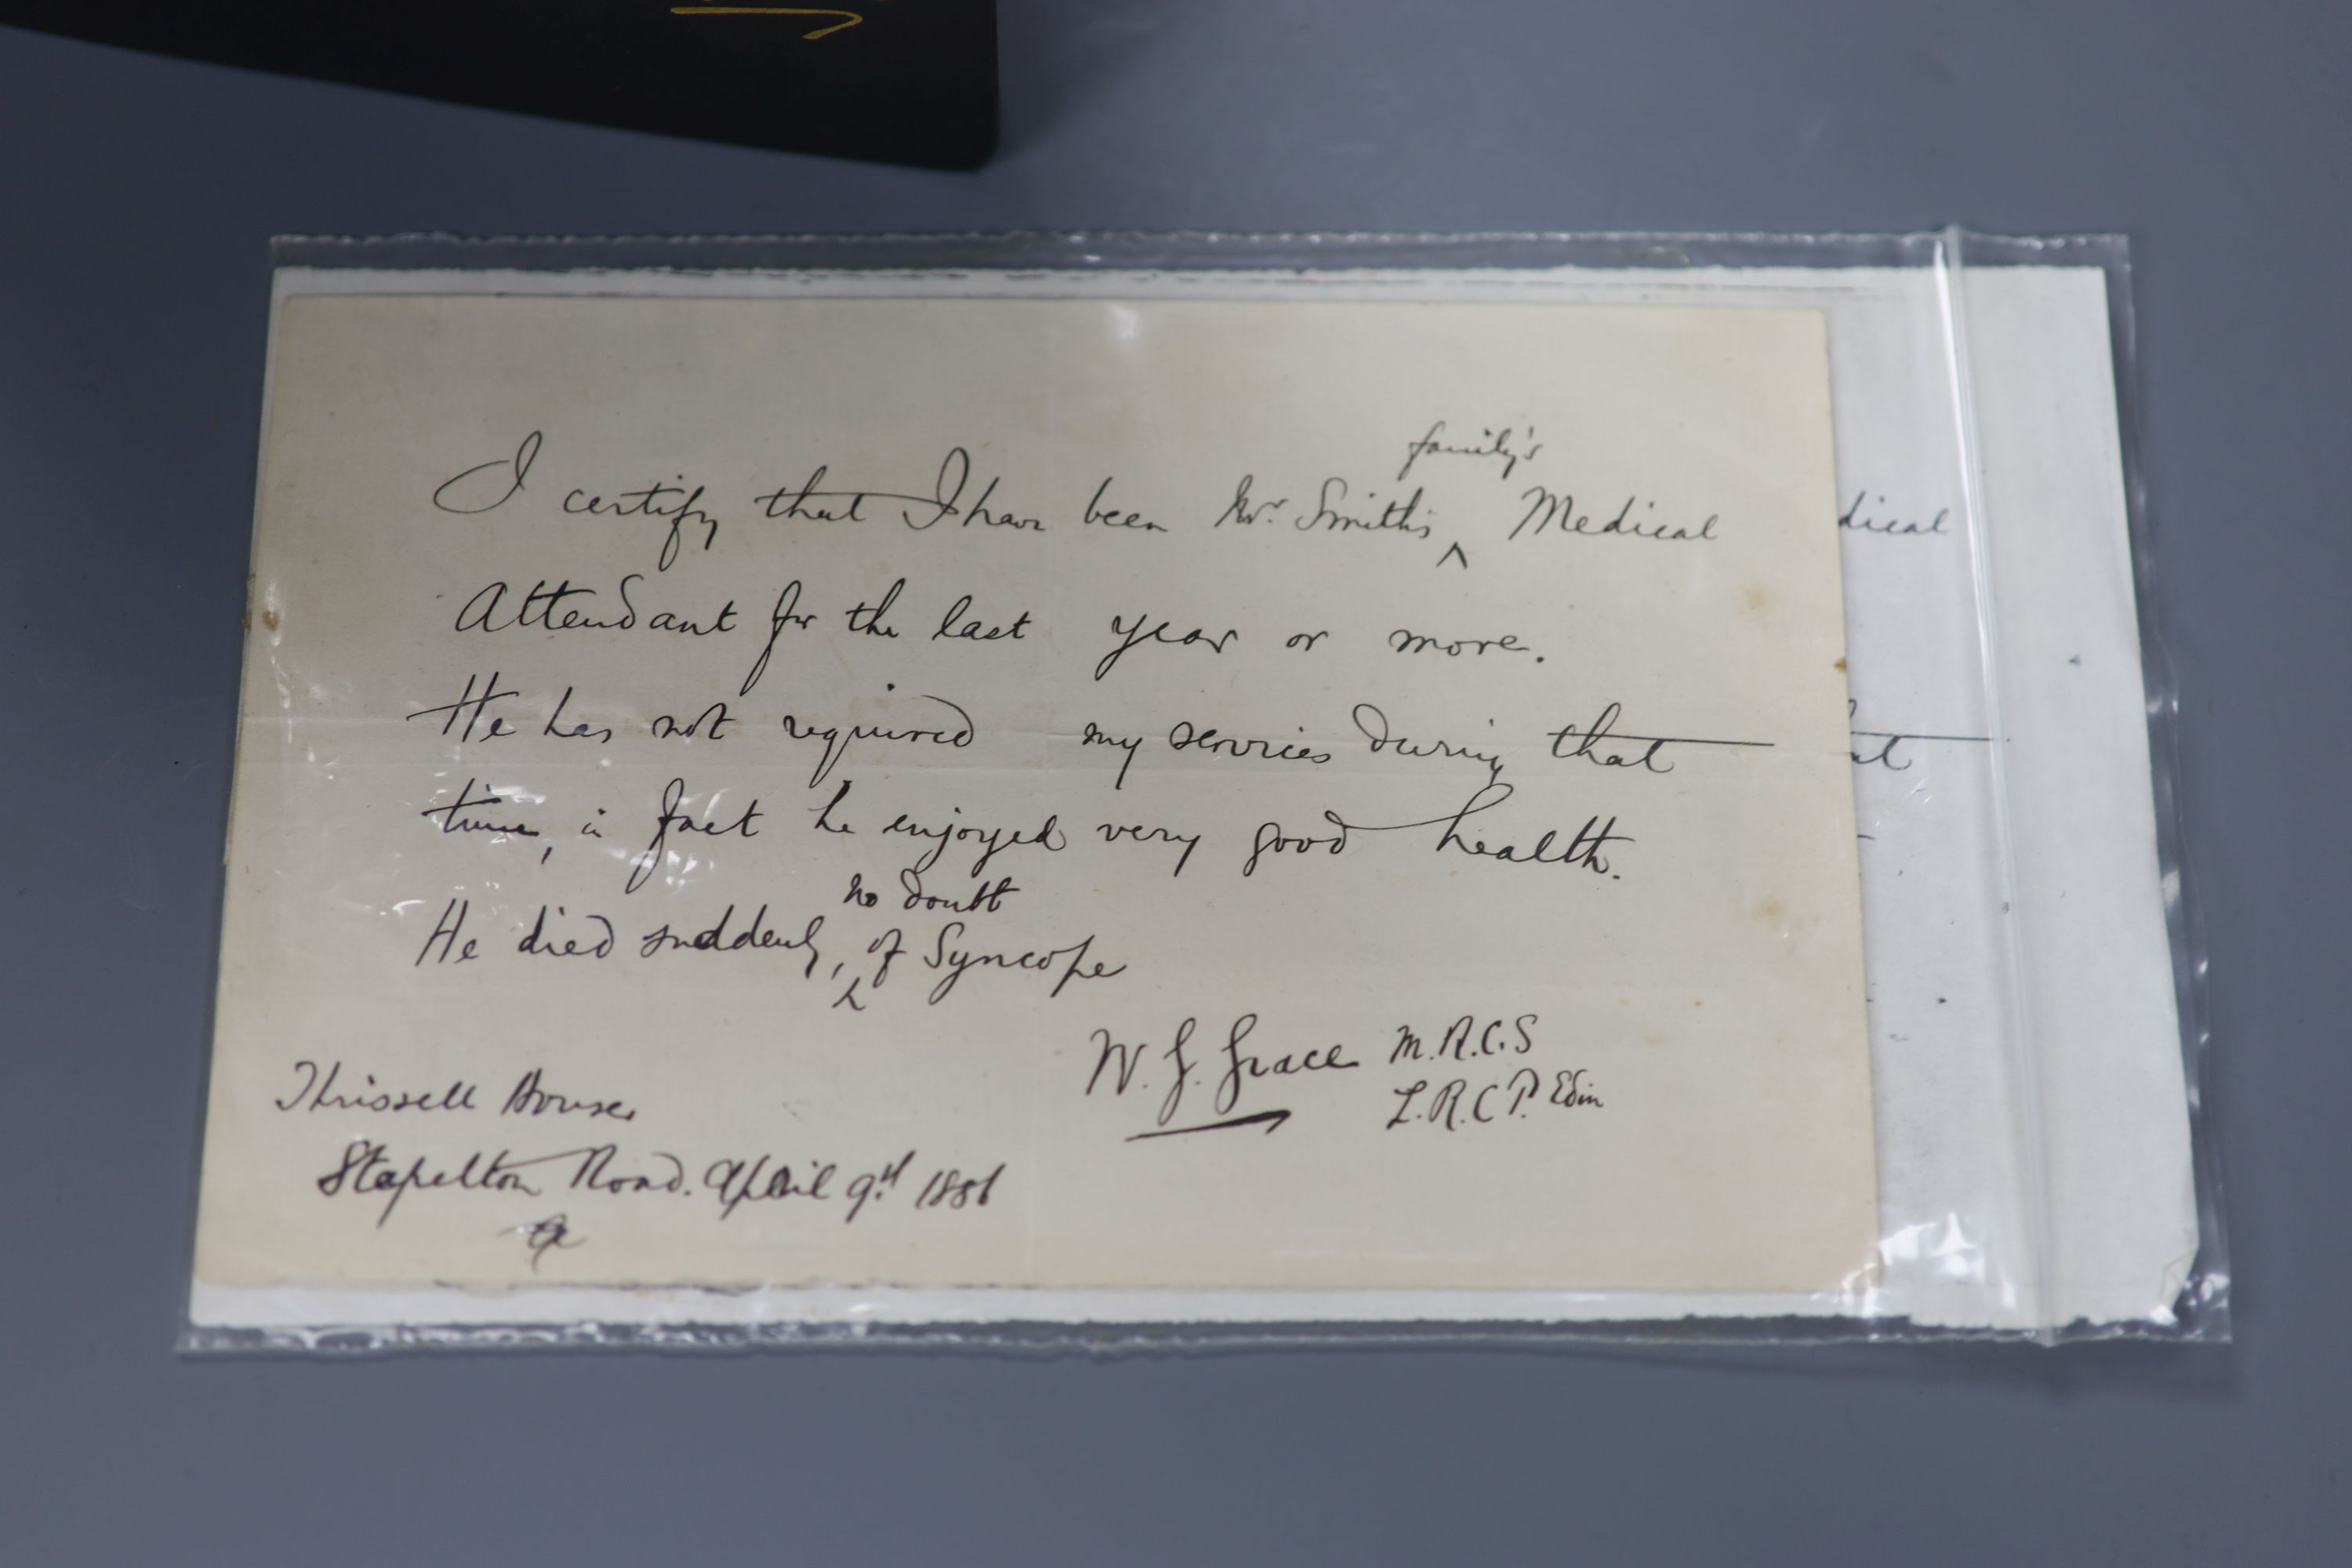 family's
I certify that I have been Mr. Smith's ^ Medical
Attendant for the last year or more.
He has not required my services during that
time, in fact he enjoyed very good health.
no doubt
He died suddenly, ^ of Syncope
W. G. Grace M.R.C.S
L.R.C.P. Edin
Thrissell House
Stapelton Road. April 9th 1886
a
dical
at